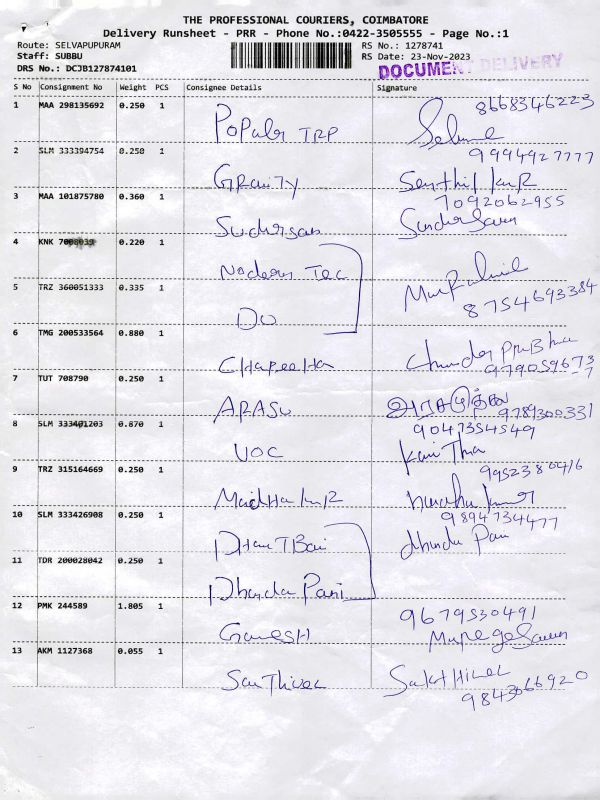 THE PROFESSIONAL COURIERS, COIMBATORE
Delivery Runsheet - PRR - Phone No.:0422-3505555 - Page No.:1
Route: SELVAPUPURAM RS No.: 1278741
Staff: SUBBU RS Date: 23-Nov-2023
DRS No.: DCJB127874101 DOCUMENT DELIVERY
S No Consignment No Weight PCS Consignee Details Signature
1 MAA 298135692 0.250 1 8668346223
Popular TRP
2 SLM 333394754 0.250 1 9994927777
Gravity Senthil kuR
3 MAA 101875780 0.360 1 7092062955
Sudersan SunderSam
4 KNK 0.220 1
Nodern Tec
5 TRZ 360051333 0.335 1 8754693384
Do
6 TMG 200533564 0.880 1 Chander PraBhu
7 TUT 708790 0.250 1
ARASU 9789300331
8 SLM 333401203 0.870 1 9047354549
VOC KaviTha
9 TRZ 315164669 0.250 1
MadHa kuR
10 SLM 333426908 0.250 1 9894734477
11 TDR 200028042 0.250 1
Dhanda Pani
12 PMK 244589 1.805 1 9679530491
GaneSH
13 AKM 1127368 0.055 1
9843066920